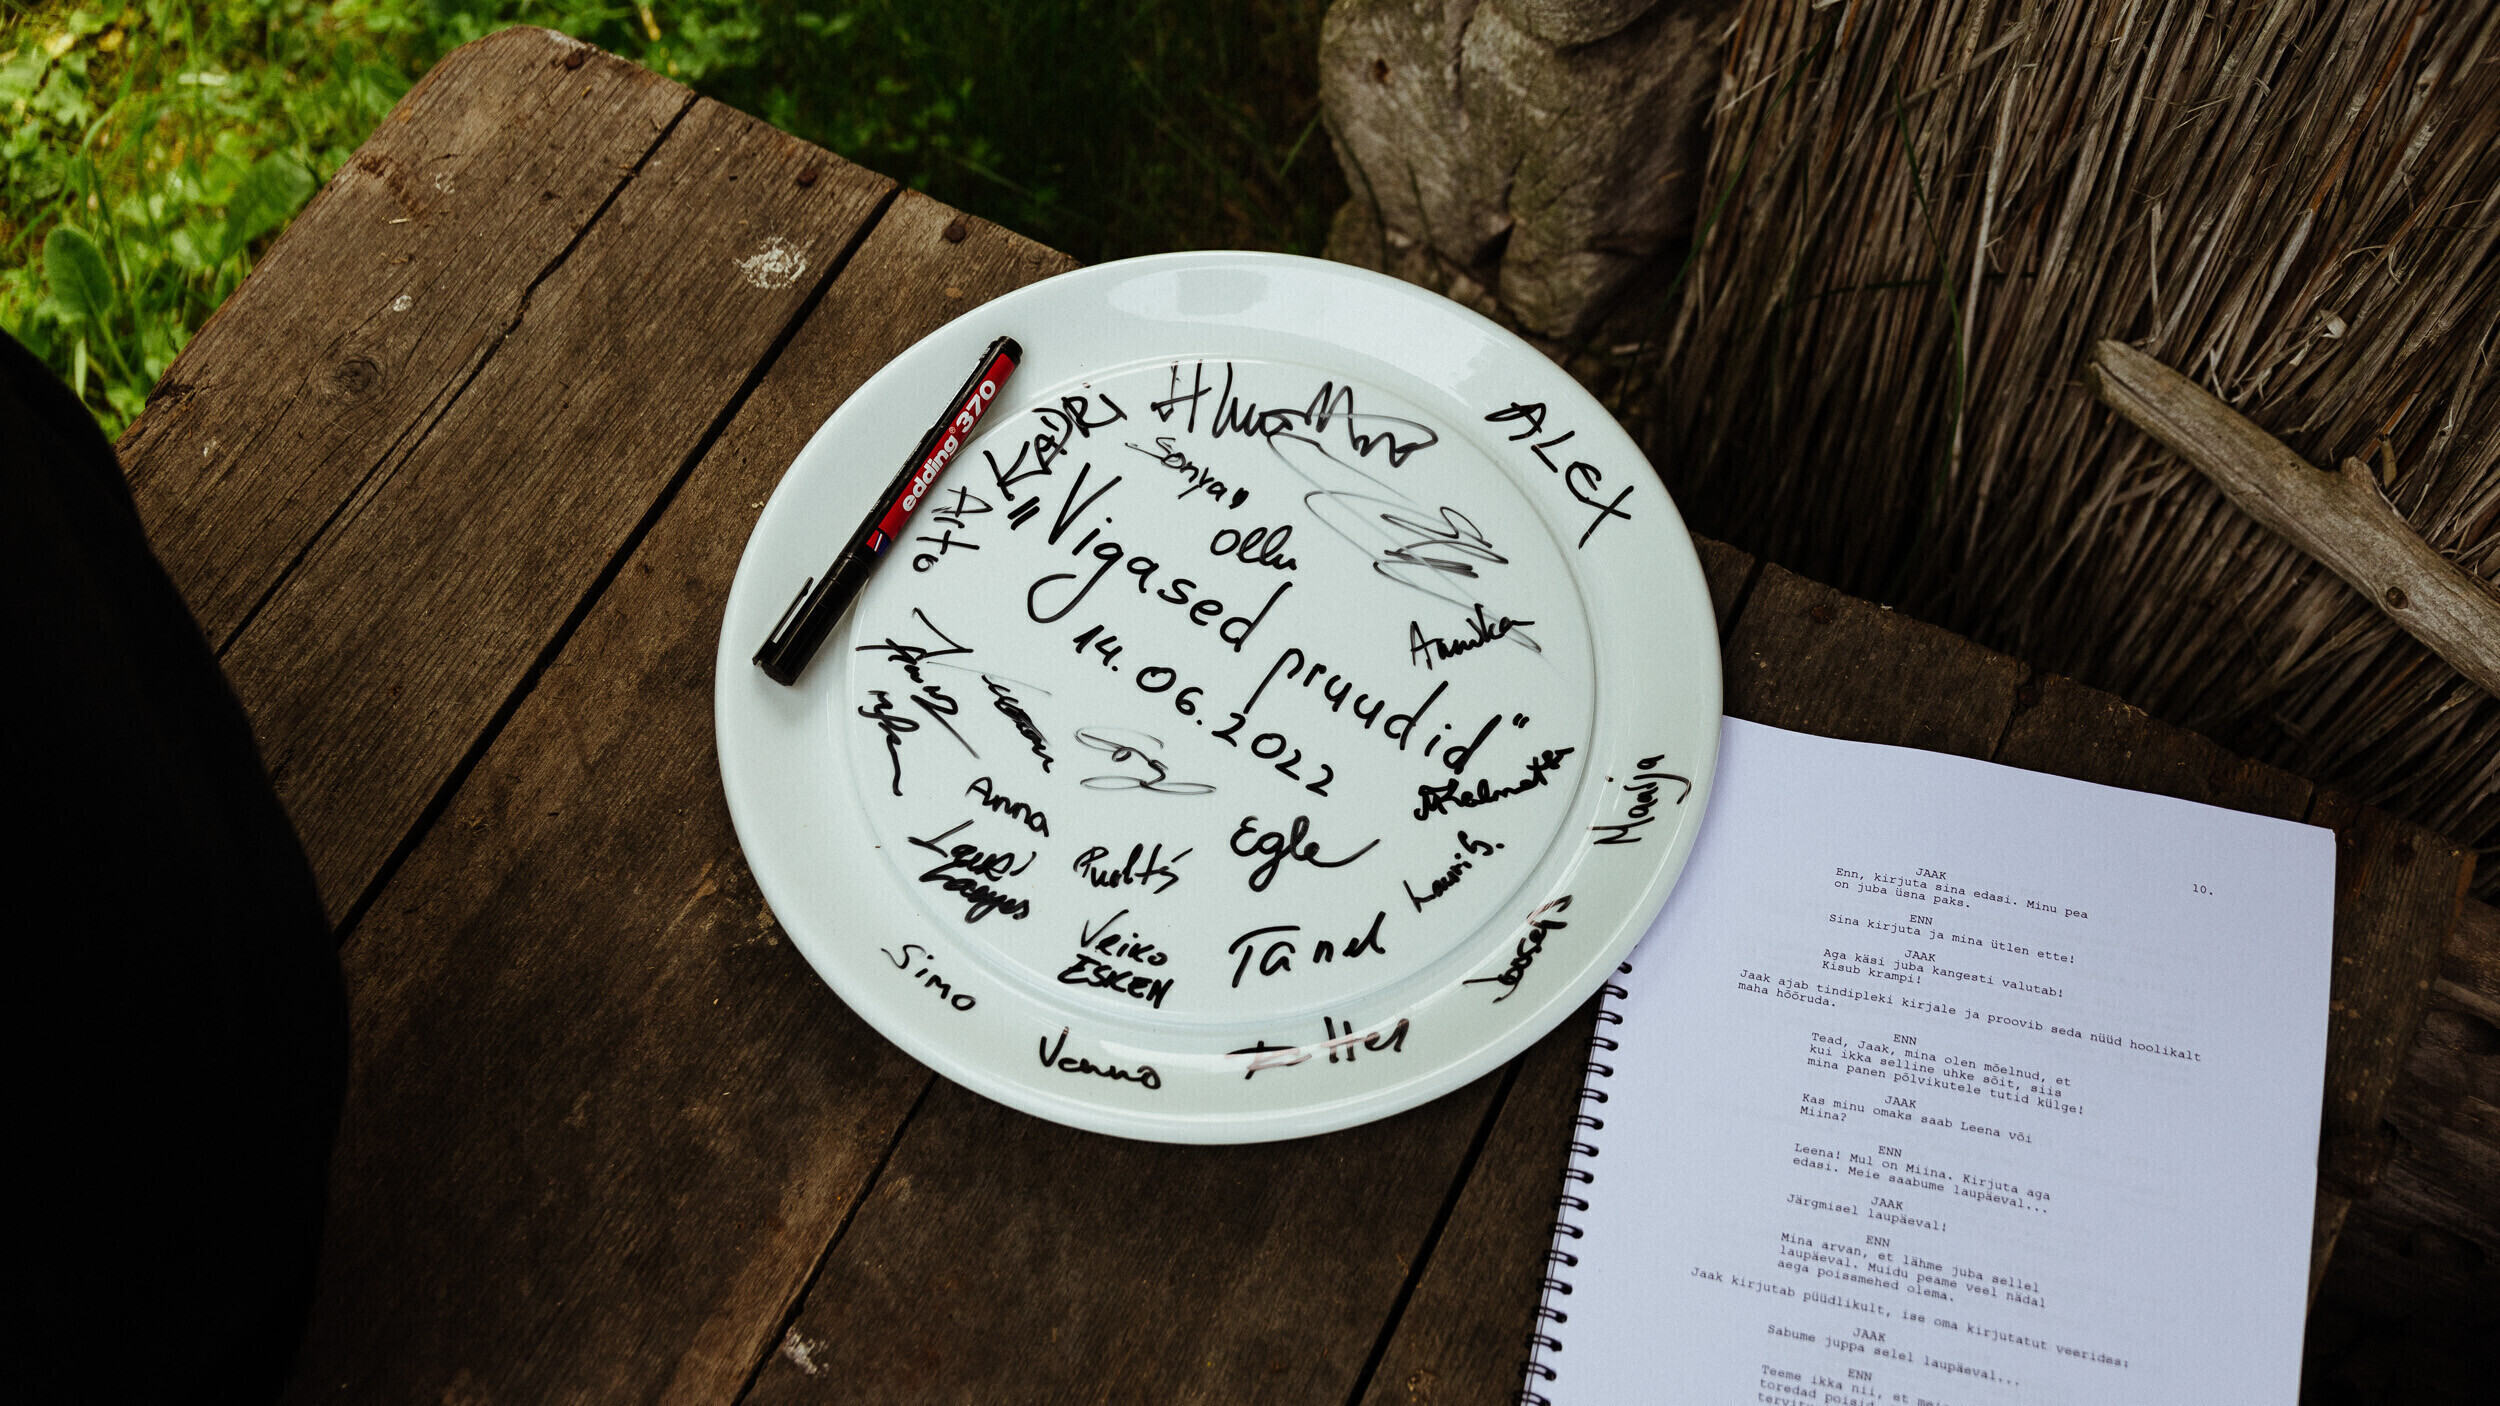 edding® 370
KADRI
Sonya
ALEX
Ollu
Aito
"Vigased pruudid"
14.06.2022
Annika
Maarja
Anna
Egle
Lauri
Lagyes
Lauri S.
Veiko
ESKEN
Tanel
Joosep
Simo
Vanno
10.
JAAK
Enn, kirjuta sina edasi. Minu pea
on juba üsna paks.
ENN
Sina kirjuta ja mina ütlen ette!
JAAK
Aga käsi juba kangesti valutab!
Kisub krampi!
Jaak ajab tindipleki kirjale ja proovib seda nüüd hoolikalt
maha hõõruda.
ENN
Tead, Jaak, mina olen mõelnud, et
kui ikka selline uhke sõit, siis
mina panen põlvikutele tutid külge!
JAAK
Kas minu omaks saab Leena või
Miina?
ENN
Leena! Mul on Miina. Kirjuta aga
edasi. Meie saabume laupäeval...
JAAK
Järgmisel laupäeval!
ENN
Mina arvan, et lähme juba sellel
laupäeval. Muidu peame veel nädal
aega poissmehed olema.
Jaak kirjutab püüdlikult, ise oma kirjutatut veerides:
JAAK
Sabume juppa selel laupäeval...
ENN
Teeme ikka nii, et
toredad poisid